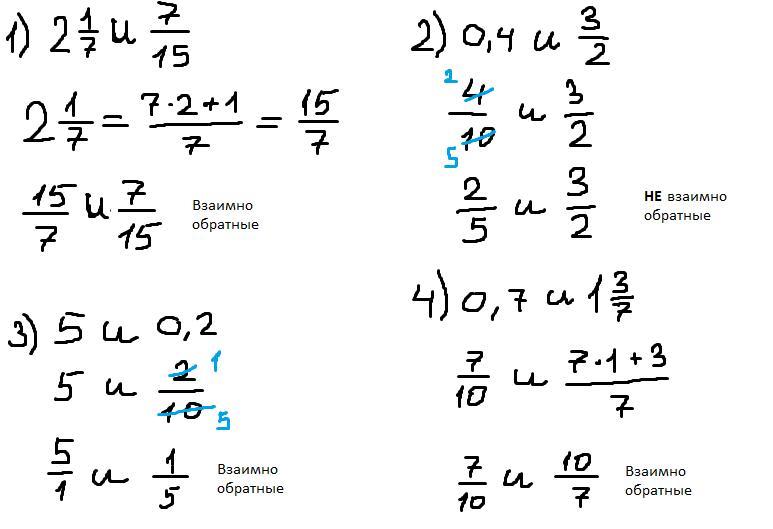 1) 2 1/7 и 7/15
2 1/7 = (7·2+1)/7 = 15/7
15/7 и 7/15 Взаимно
обратные
2) 0,4 и 3/2
2 4/10 5 и 3/2
2/5 и 3/2 НЕ взаимно
обратные
3) 5 и 0,2
5 и 2/10 1 5
5/1 и 1/5 Взаимно
обратные
4) 0,7 и 1 3/7
7/10 и (7·1+3)/7
7/10 и 10/7 Взаимно
обратные